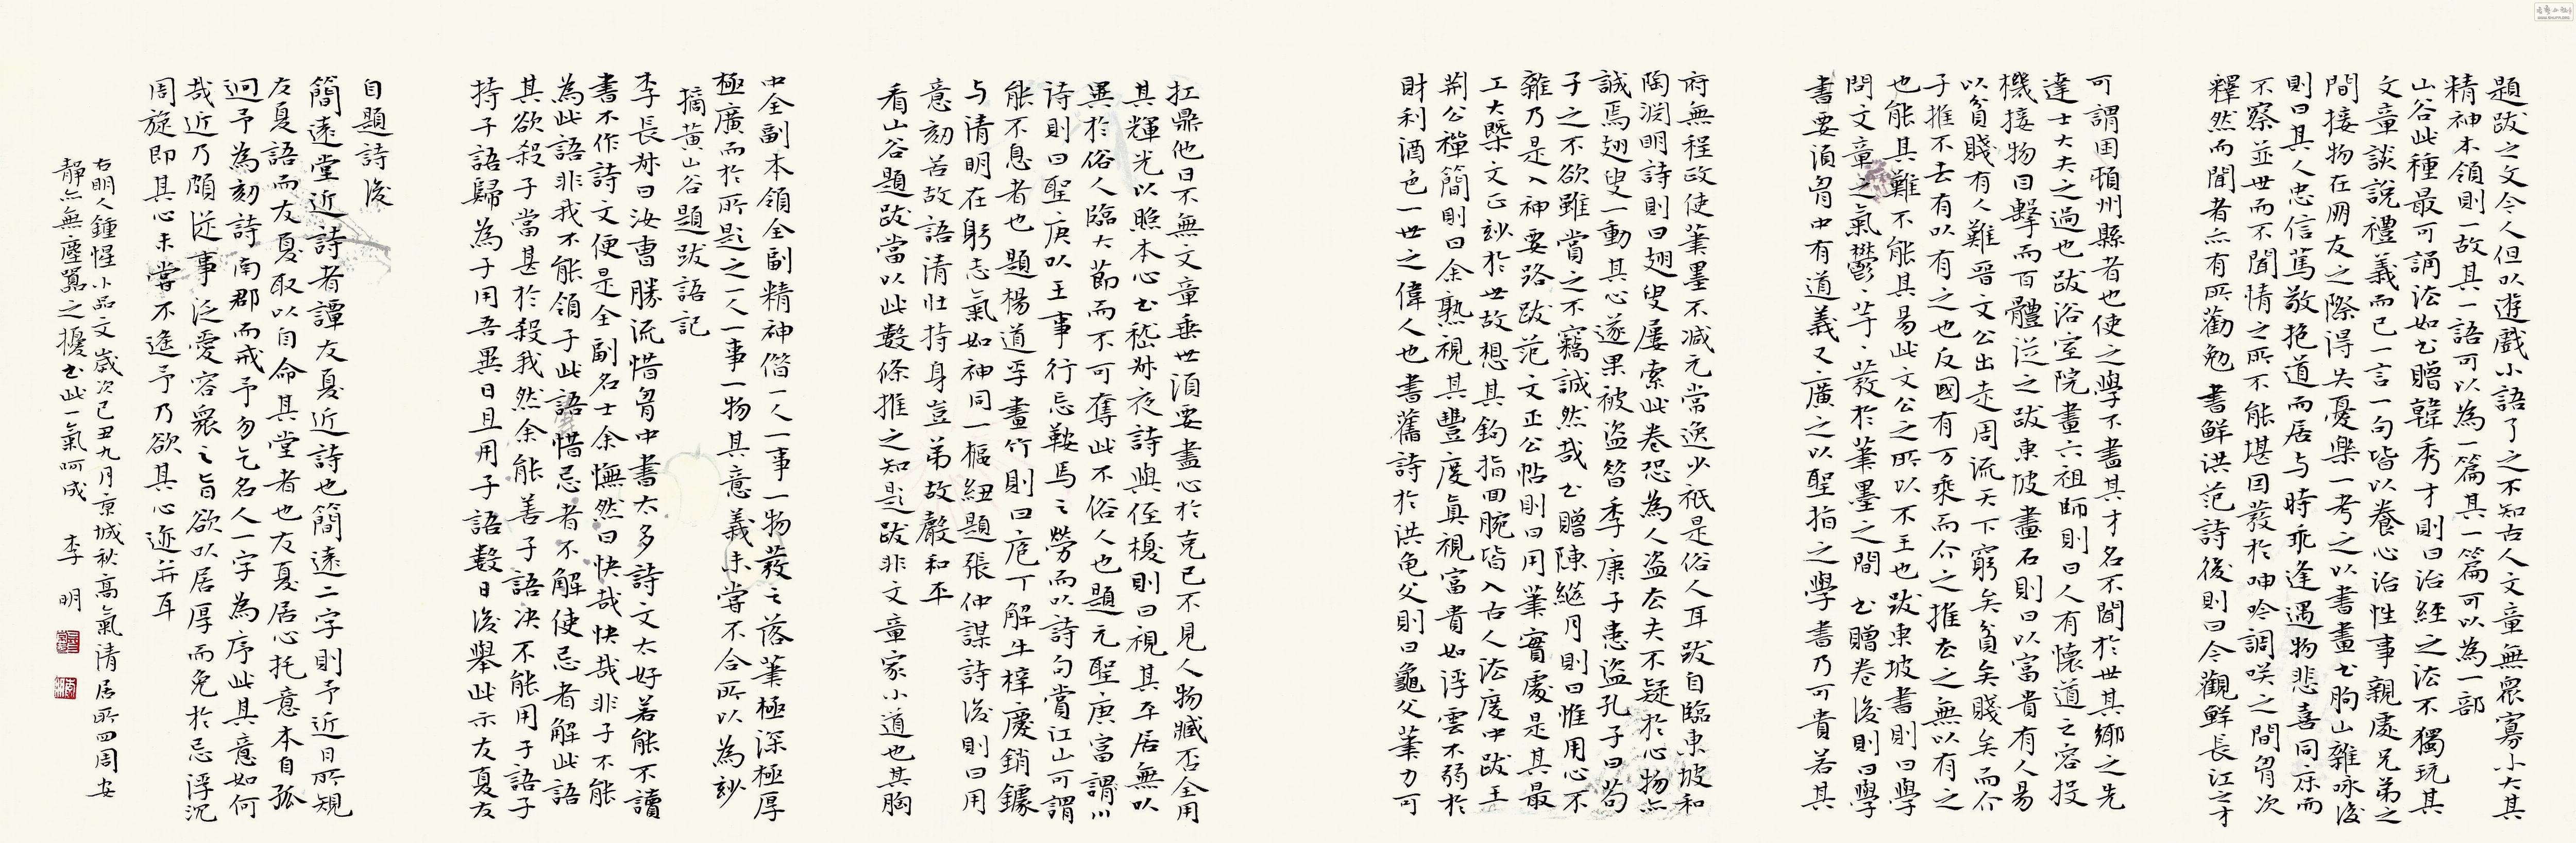 題跋之文今人但以遊戲小語了之不知古人文章無衆寡小大其
精神本領則一故其一語可以為一篇其一篇可以為一部
山谷此種最可誦法如書贈韓秀才則曰治經之法不獨玩其
文章談說禮義而已一言一句皆以養心治性事親處兄弟之
間接物在朋友之際得失憂樂一考之以書畫書朐山雜咏後
則曰其人忠信篤敬抱道而居与時乖逢遇物悲喜同床而
不察並世而不聞情之所不能堪因發於呻吟調咲之間胷次
釋然而聞者亦有所勸勉書鮮洪范詩後則曰今觀鮮長江之才
可謂困頓州縣者也使之學不盡其才名不聞於世其鄉之先
達士大夫之過也跋浴室院畫六祖師則曰人有懷道之容投
機接物目擊而百體從之跋東坡畫石則曰以富貴有人易
以貧賤有人難晉文公出走周流天下窮矣貧矣賤矣而介
子推不去有以有之也反國有万乘而介之推去之無以有之
也能其難不能其易此文公之所以不王也跋東坡書則曰學
問文章之氣鬱:芋:發於筆墨之間書贈卷後則曰學
書要須胷中有道義又廣之以聖指之學書乃可貴若其
府無程政使筆墨不减元常逸少祇是俗人耳跋自臨東坡和
陶淵明詩則曰翅叟屢索此卷恐為人盜去夫不疑於心物亦
誠焉翅叟一動其心遂果被盜昝季康子患盜孔子曰苟
子之不欲雖賞之不竊誠然哉書贈陳繼月則曰惟用心不
雜乃是入神要路跋范文正公帖則曰用筆實處是其最
工大槩文正妙於世故想其鈎指回腕皆入古人法度中跋王
荆公禪簡則曰余熟視其豐度真視富貴如浮雲不弱於
財利酒色一世之偉人也書舊詩於洪龟父則曰龜父筆力可
扛鼎他日不無文章垂世須要盡心於克己不見人物臧否全用
其輝光以照本心書嵇叔夜詩與侄榎則曰視其平居無以
異於俗人臨大節而不可奪此不俗人也題元聖庚富謂川
詩則曰聖庚以王事行忘鞍馬之勞而以詩句賞江山可謂
能不息者也題楊道孚畫竹則曰庖丁解牛梓慶銷鐻
与清明在躬志氣如神同一樞紐題張仲謀詩後則曰用
意刻苦故語清壯持身豈弟故聲和平
看山谷題跋當以此數條推之知是跋非文章家小道也其胸
中全副本領全副精神借一人一事一物發之落筆極深極厚
極廣而於所題之一人一事一物其意義未嘗不合所以為妙
摘黃山谷題跋語記
李長叔曰汝曹勝流惜胷中書太多詩文太好若能不讀
書不作詩文便是全副名士余憮然曰快哉快哉非子不能
為此語非我不能領子此語惜忌者不解使忌者解此語
其欲殺子當甚於殺我然余能善子語决不能用子語子
持子語歸為子用吾異日且用子語數日後舉此示友夏友
自題詩後
簡遠堂近詩者譚友夏近詩也簡遠二字則予近日所規
友夏語而友夏取以自命其堂者也友夏居心托意本自孤
迥予為刻詩南郡而戒予勿乞名人一字為序此其意如何
哉近乃頗從事泛愛容衆之旨欲以居厚而免於忌浮沉
周旋即其心未嘗不遙予乃欲其心迹并耳
右明人鍾惺小品文歲次己丑九月京城秋高氣清居所四周安
靜亦無塵囂之擾書此一氣呵成 李明